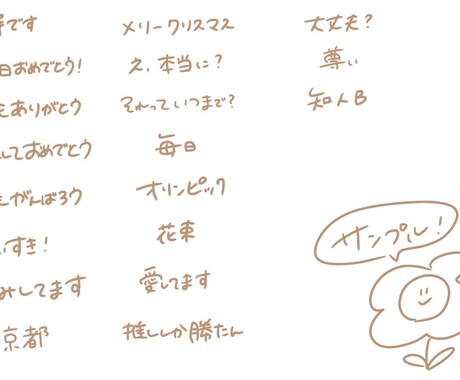 です
日おめでとう!
もありがとう
しておめでとう
がんばろう
すき!
みしてます
京都
メリークリスマス
え、本当に?
それっていつまで?
毎日
オリンピック
花束
愛してます
推ししか勝たん
大丈夫?
尊い
知人B
サンプル!